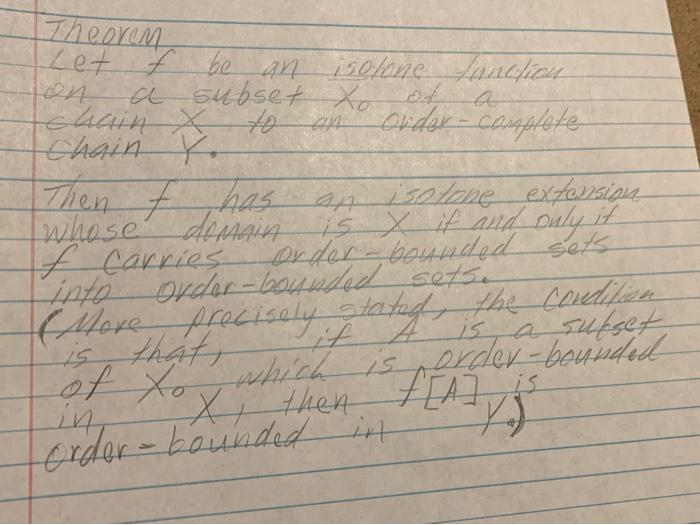 Theorem
Let f be an isotone function
on a subset X₀ of a
chain X to an order-complete
chain Y.
Then f has an isotone extension
whose domain is X if and only if
f carries order-bounded sets
into order-bounded sets.
(More precisely stated, the condition
is that, if A is a subset
of X₀ which is order-bounded
in X, then f[A] is
order-bounded in Y.)